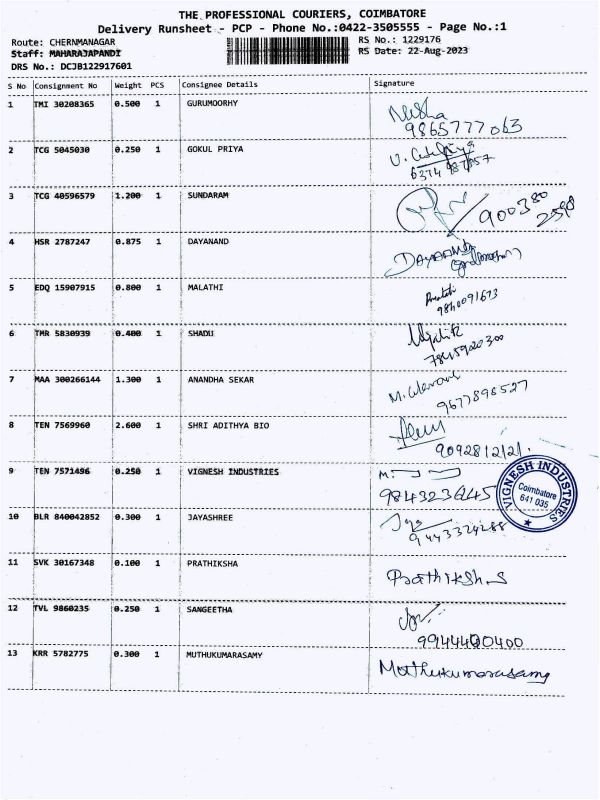 THE PROFESSIONAL COURIERS, COIMBATORE
Delivery Runsheet - PCP - Phone No.:0422-3505555 - Page No.:1
Route: CHERNMANAGAR RS No.: 1229176
Staff: MAHARAJAPANDI RS Date: 22-Aug-2023
DRS No.: DCJB122917601
S No Consignment No Weight PCS Consignee Details Signature
1 TMI 30208365 0.500 1 GURUMOORHY
9865777063
2 TCG 5045030 0.250 1 GOKUL PRIYA
3 TCG 40596579 1.200 1 SUNDARAM
900380
4 HSR 2787247 0.875 1 DAYANAND DAYANAND
5 EDQ 15907915 0.800 1 MALATHI
9840091673
6 TMR 5830939 0.400 1 SHADU
7845920300
7 MAA 300266144 1.300 1 ANANDHA SEKAR
9677898527
8 TEN 7569960 2.600 1 SHRI ADITHYA BIO
9092812121.
9 TEN 7571496 0.250 1 VIGNESH INDUSTRIES
VIGNESH INDUSTRIES
Coimbatore
641 035
10 BLR 840042852 0.300 1 JAYASHREE
11 SVK 30167348 0.100 1 PRATHIKSHA
12 TVL 9860235 0.250 1 SANGEETHA
9944400400
13 KRR 5782775 0.300 1 MUTHUKUMARASAMY Muthukumarasamy